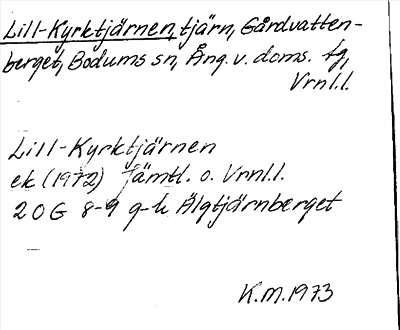 Lill-Kyrktjärnen, tjärn, Gårdvatten-
berget, Bodums sn, Ång. v. doms. tg,
Vrnl.l.
Lill-Kyrktjärnen
ek (1972) Jämtl. o. Vrnl.l.
20G 8-9 g-h Älgtjärnberget
K.M. 1973